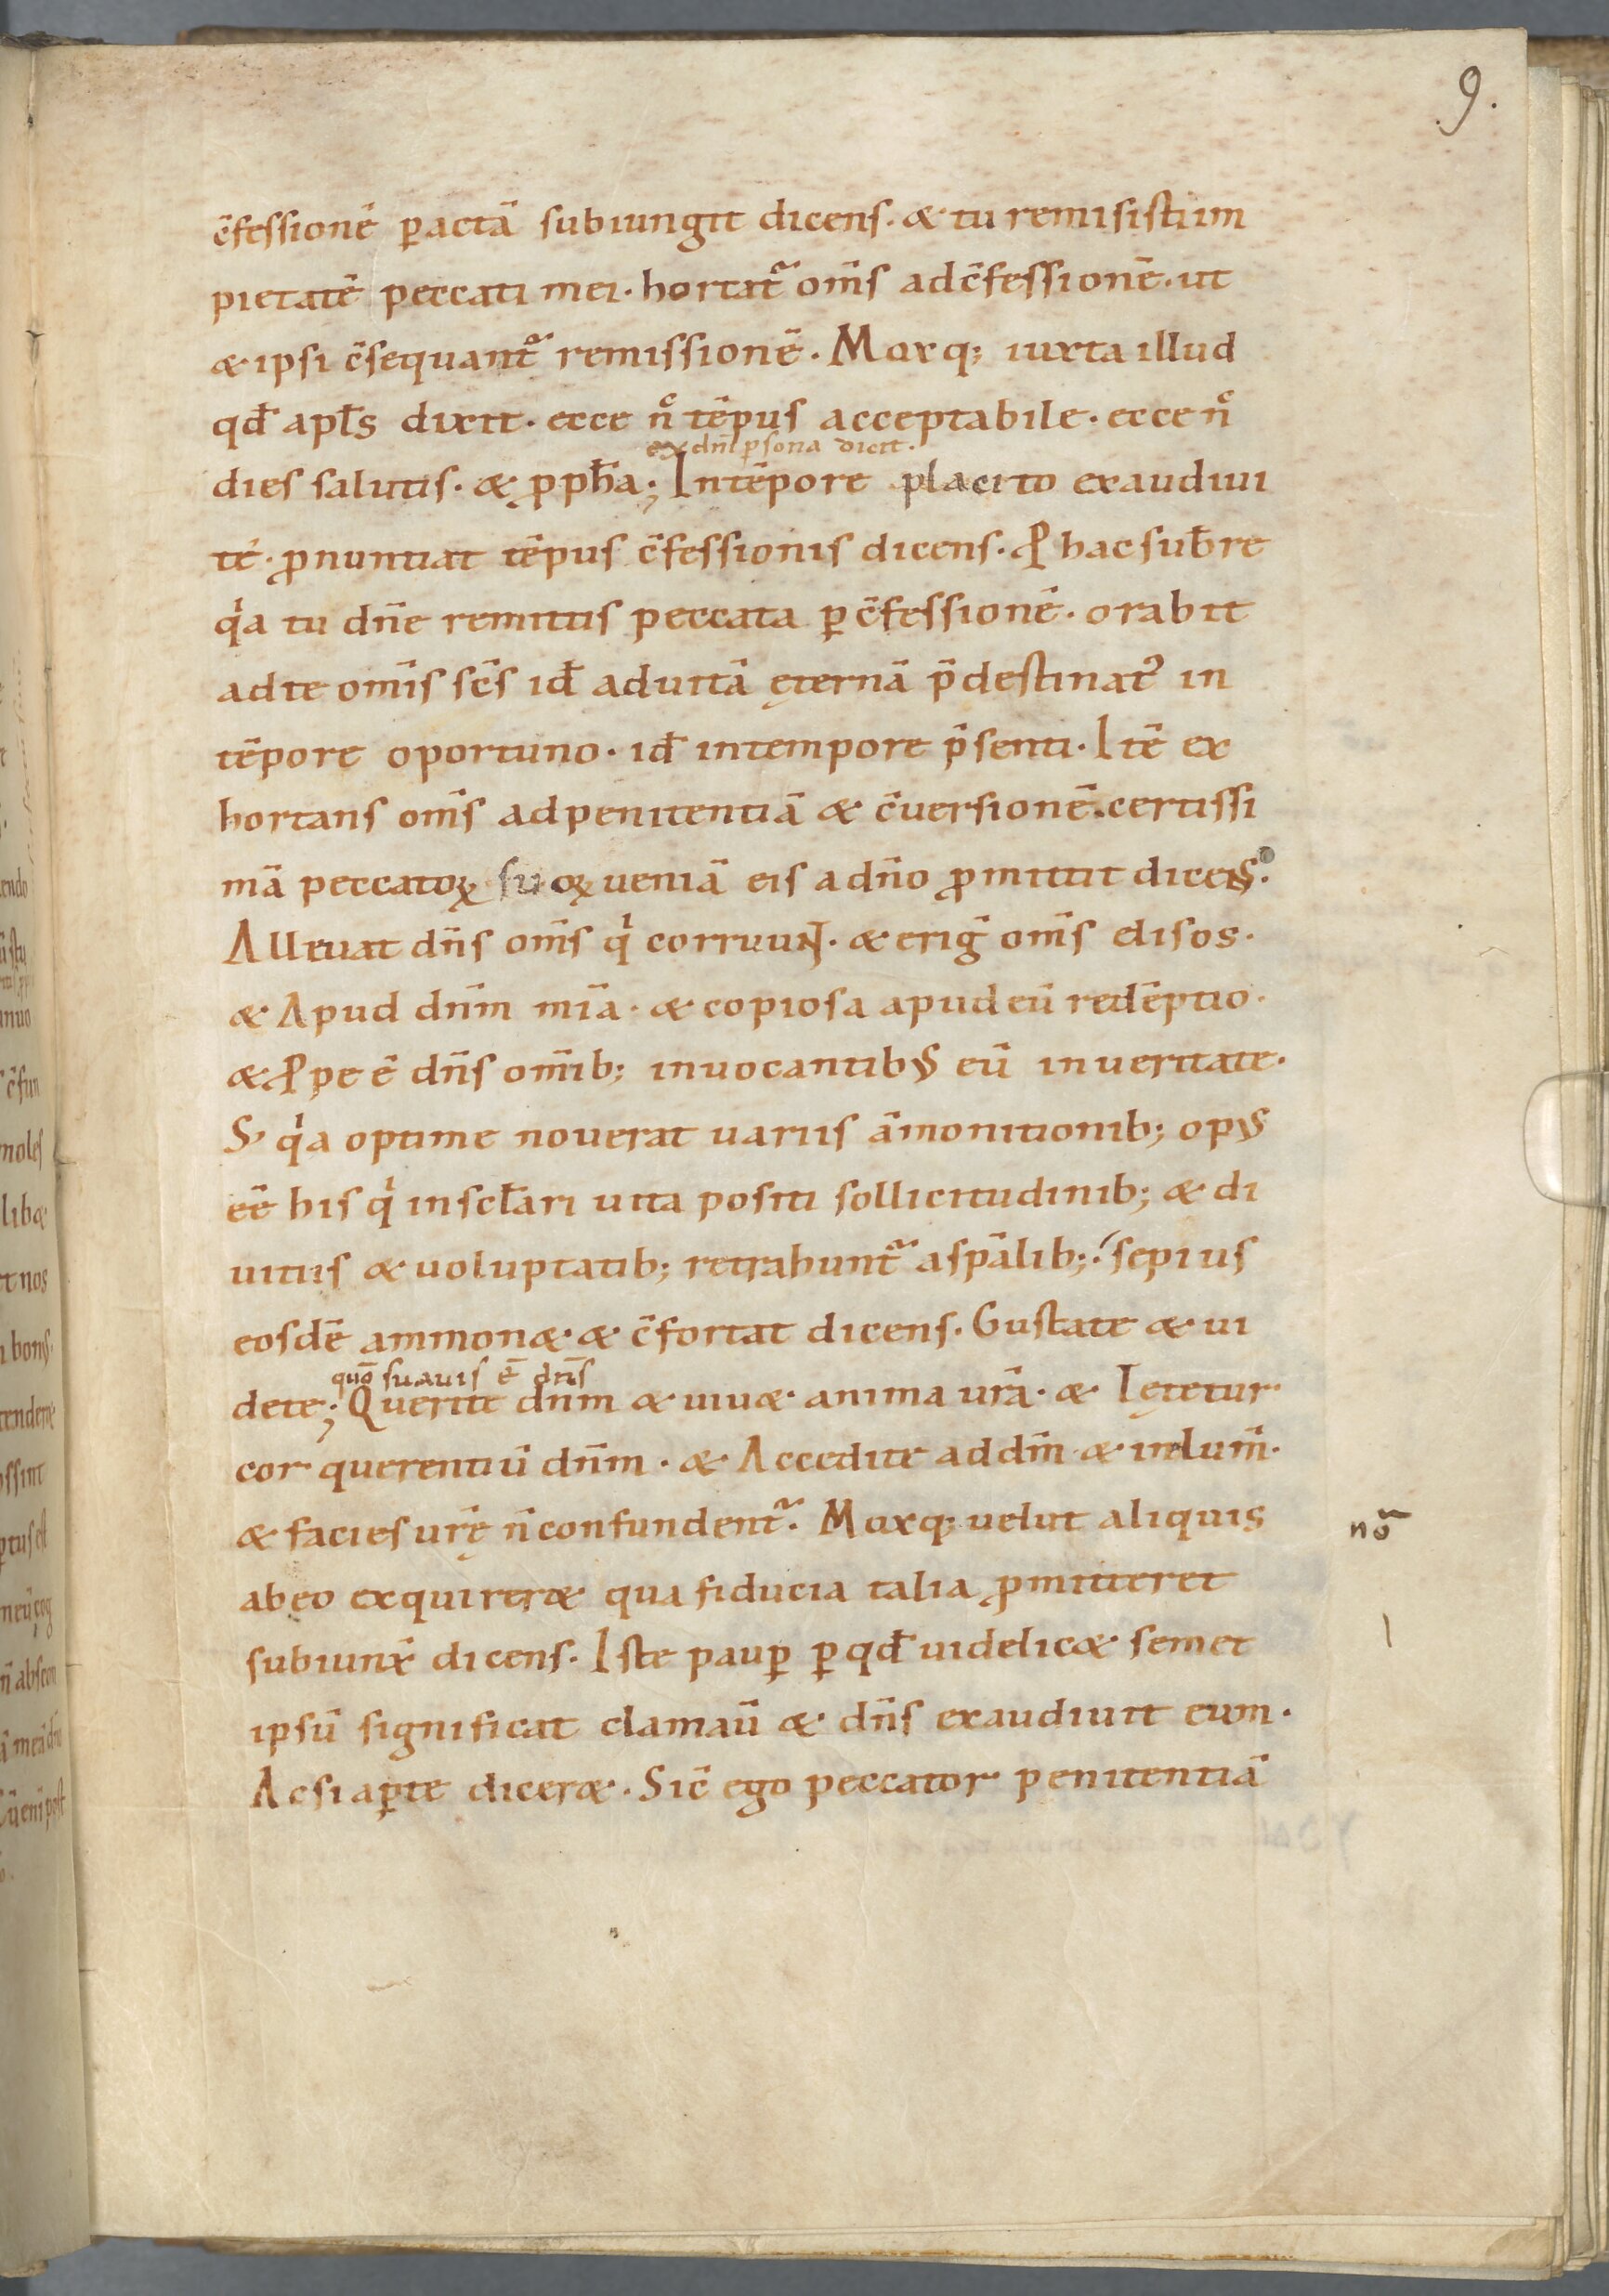 9.
c̄fessionē ꝑactā subiungit dicens. & tu remisisti im
pietatē peccati mei. hortat᷑ om̄s ad c̄fessionē. ut
& ipsi c̄sequant᷑ remissionē. Moxq; iuxta illud
qđ apƚs dixit. ecce nͦ tēpus acceptabile. ecce nͦ
ex dn̄i ꝑsona dicit.
dies salutis. & ꝓpħa; In tēpore placito exaudiui
te. ꝓnuntiat tēpus c̄fessionis dicens. Ꝓ hac sub̄re
qͥa tu dn̄e remittis peccata ꝑ c̄fessionē. orabit
ad te om̄is sc̄s id̄ ad uitā ęternā p̄destinatꝰ in
tēpore oportuno. id̄ in tempore p̄senti. Itē ex
hortans om̄s ad penitentiā & c̄uersionē. certissi
mā peccatoꝝ suoꝝ ueniā eis a dn̄o ꝓmittit dicens.
Alleuat dn̄s om̄s qͥ corruunt. & eriḡ om̄s elisos.
& Apud dn̄m mīa. & copiosa apud eū redēptio.
& Ꝓpe ē dn̄s om̄ib; inuocantibus eū in ueritate.
S; qͥa optime nouerat uariis āmonitionib; opus
eē his qͥ in scƚari uita positi sollicitudinib; & di
uitiis & uoluptatib; retrahunt᷑ a spālib; sepius
eosdē ammon& & c̄fortat dicens. Gustate & ui
quō suauis ē dn̄s
dete; Querite dn̄m & uiu& anima ur̄a. & Lętetur
cor querentiū dn̄m. & Accedite ad dm̄ & inlum̄.
& facies ur̄ę n̄ confundent᷑. Moxq; uelut aliquis
nō
ab eo exquirer& qua fiducia talia ꝓmitteret
subiunx̄ dicens. Iste pauꝑ ꝑ qđ uidelic& semet
ipsū significat clamaū & dn̄s exaudiuit eum.
Ac si aꝑte dicer&. Sic̄ ego peccator penitentiā